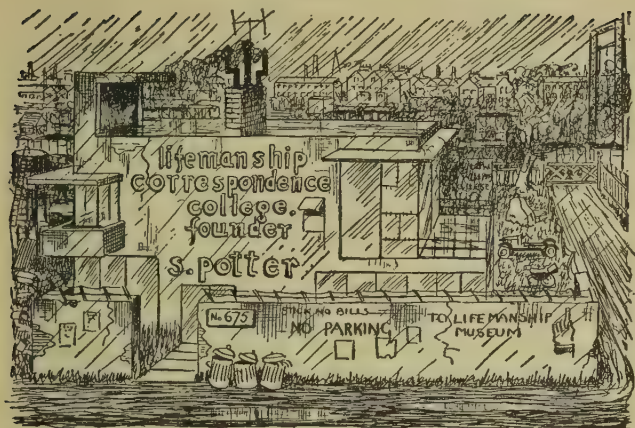 lifemanship
correspondence
college.
founder
s. potter
No 675
STICK NO BILLS
NO PARKING
TO LIFEMANSHIP
MUSEUM